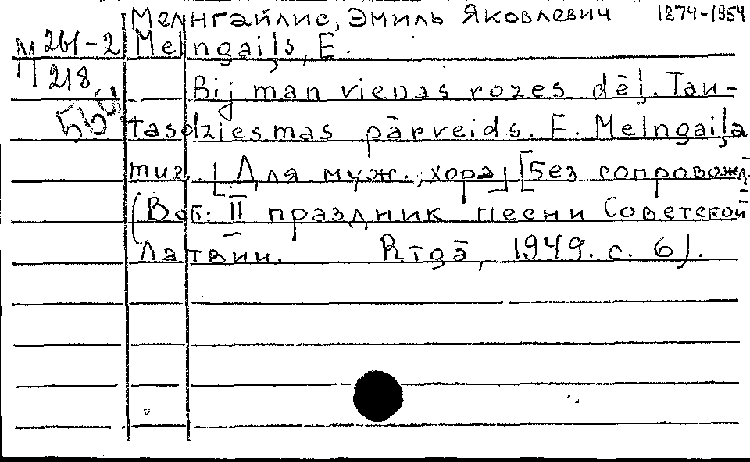 Мелнгайлис, Эмиль Яковлевич 1874-1954
М 261-2 Melngaiļs, E.
П 218 Bij man vienas rozes dēļ. Tau-
tasdziesmas pārveids. E. Melngaiļa
muz. [Для муж. хора] [Без сопровожд.
(В сб. II праздник песни Советской
Латвии. Rīgā, 1949. с. 6).